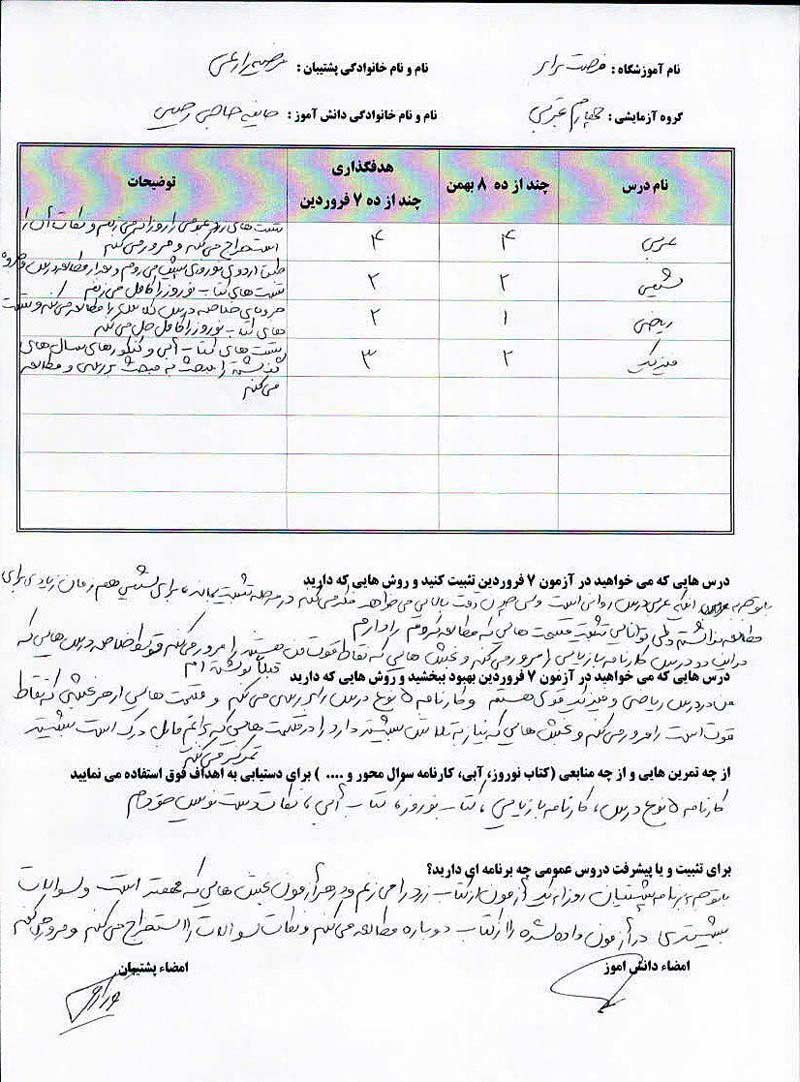 نام آموزشگاه : فرصت برابر
نام و نام خانوادگی پشتیبان : مرضیه زارعی
گروه آزمایشی : چهارم تجربی
نام و نام خانوادگی دانش آموز :
نام درس
چند از ده ۸ بهمن
هدفگذاری
چند از ده ۷ فروردین
توضیحات
عربی ۴ ۴ تست های را روزانه می زنم و نکات آن را
استخراج می کنم و مرور می کنم
شیمی ۲ ۲ طبق اردوی نوروزی پیش می روم و بعد از مطالعه درس
تست های کتاب نوروز را کامل می زنم
ریاضی ۱ ۲ جزوه های خلاصه درس کلاسی را مطالعه می کنم و تست
های کتاب نوروز را کامل حل می کنم
فیزیک ۲ ۳ تست های کتاب آبی و کنکورهای سال های
گذشته را مبحث به مبحث بررسی و مطالعه
می کنم
درس هایی که می خواهید در آزمون ۷ فروردین تثبیت کنید و روش هایی که دارید
با توجه به اینکه عربی درس روانی است ولی چون دقت بالایی می خواهد فکر می کنم در مرحله تثبیت بماند، برای شیمی هم زمان زیادی برای
مطالعه نداشتم ولی توانایی تثبیت قسمت هایی که مطالعه کردم را دارم
در این دو درس کارنامه بازیابی را مرور می کنم و بخش هایی که نقاط قوت من هستند را مرور می کنم خلاصه درس هایی که
قبلاً نوشته ام
درس هایی که می خواهید در آزمون ۷ فروردین بهبود ببخشید و روش هایی که دارید
من در درس ریاضی و فیزیک قوی هستم و کارنامه ۵ نوع درس را بررسی می کنم و قسمت هایی از هر بخشی که نقاط
قوت است را مرور می کنم و بخش هایی که نیاز به تلاش بیشتر دارد را در قسمت هایی که برایم قابل درک است بیشتر
تمرکز می کنم
از چه تمرین هایی و از چه منابعی (کتاب نوروز، آبی، کارنامه سوال محور و .... ) برای دستیابی به اهداف فوق استفاده می نمایید
کارنامه ۵ نوع درس، کارنامه بازیابی، کتاب نوروز، کتاب آبی، نکات دست نویس خودم
برای تثبیت و یا پیشرفت دروس عمومی چه برنامه ای دارید؟
با توجه به برنامه پشتیبان روزانه یک آزمون از کتاب زرد را می زنم و در هر آزمون بخش هایی که مهمتر است و سوالات
بیشتری در آزمون داده شده را از کتاب دوباره مطالعه می کنم و نکات سوالات را استخراج می کنم و مرور می کنم
امضاء دانش اموز
امضاء پشتیبان